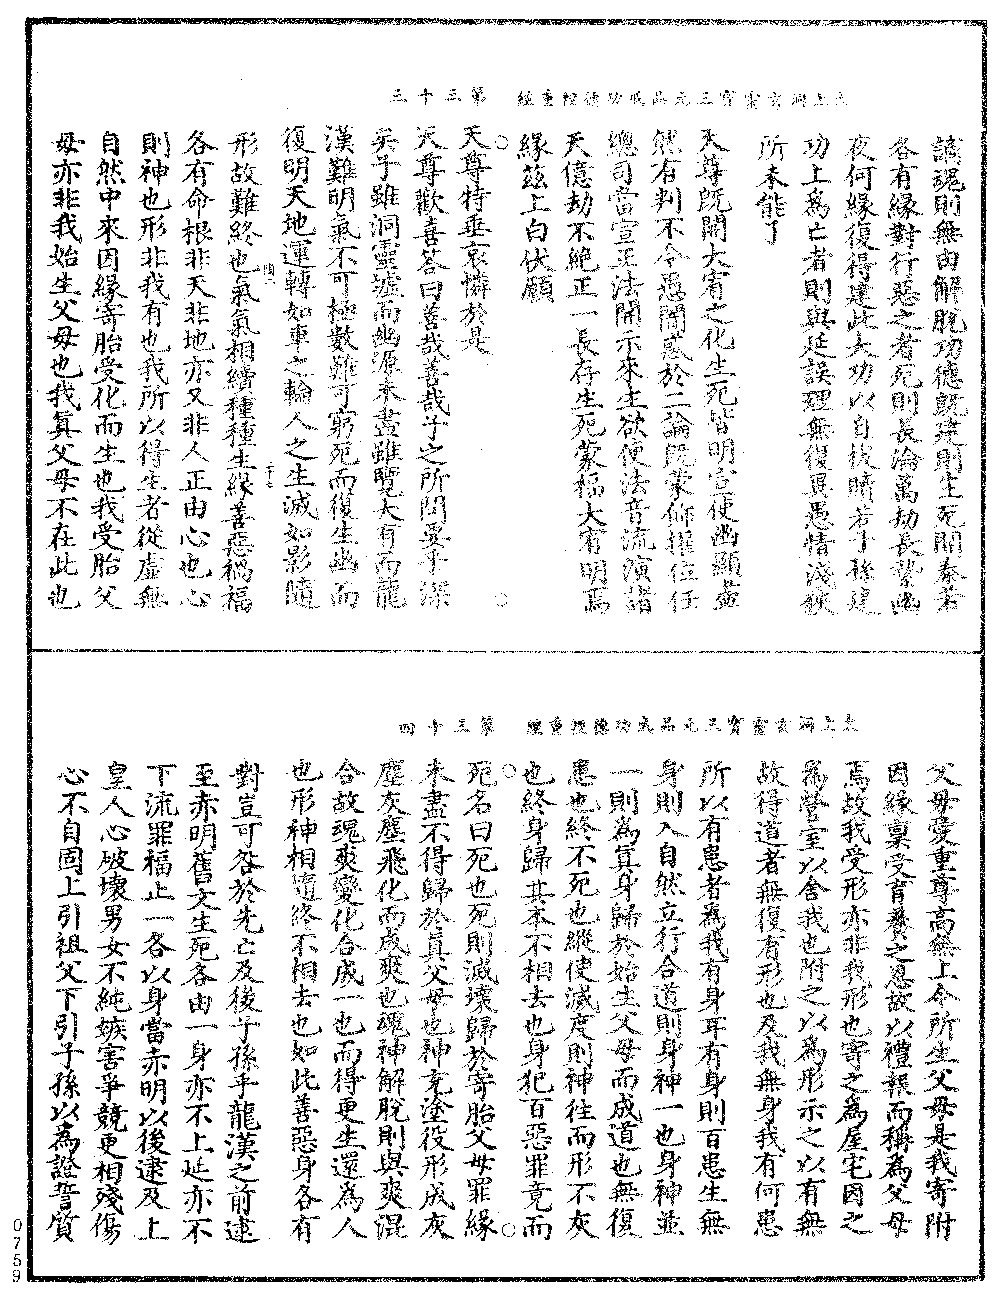 太上洞玄靈寶三元品戒功德輕重經　第三十三
讁魂則無由解脫功德既建則生死開泰若
各有緣對行惡之者死則長淪萬劫長墊幽
夜何緣復得建此大功以自拔贖若子孫建
功上為亡者則與延誤理無復異愚情淺狹
所未能了
天尊既開大宥之化生死皆明宜使幽顯並
然有判不令愚闇惑於二論既蒙仰擢位任
總司當宣正法開示來生欲使法音流演諸
天億劫不絕正一長存生死蒙福大宥明焉
緣茲上白伏願
天尊特垂哀憐於是
天尊歡喜答曰善哉善哉子之所問要乎深
矣子雖洞靈墟而幽源未盡雖覽大有而龍
漢難明氣不可極數難可窮死而復生幽而
復明天地運轉如車之輪人之生滅如影隨
形故難終也氣氣相續種種生緣善惡禍福
各有命根非天非地亦又非人正由心也心
則神也形非我有也我所以得生者從虛無
自然中來因緣寄胎受化而生也我受胎父
母亦非我始生父母也我真父母不在此也
太上洞玄靈寶三元品戒功德輕重經　第三十四
父母愛重尊高無上今所生父母是我寄附
因緣稟受育養之恩故以禮報而稱為父母
焉故我受形亦非我形也寄之為屋宅因之
為營室以舍我也附之以為形示之以有無
故得道者無復有形也及我無身我有何患
所以有患者為我有身耳有身則百患生無
身則入自然立行合道則身神一也身神並
一則為真身歸於始生父母而成道也無復
患也終不死也縱使滅度則神往而形不灰
也終身歸其本不相去也身犯百惡罪竟而
死名曰死也死則滅壞歸於寄胎父母罪緣
未盡不得歸於真父母也神充塗役形成灰
塵灰塵飛化而成爽也魂神解脫則與爽混
合故魂爽變化合成一也而得更生還為人
也形神相隨終不相去也如此善惡身各有
對豈可咎於先亡及後子孫乎龍漢之前逮
至赤明舊文生死各由一身亦不上延亦不
下流罪福止一各以身當赤明以後逮及上
皇人心破壞男女不純嫉害爭競更相殘傷
心不自固上引祖父下引子孫以為證誓質
0759